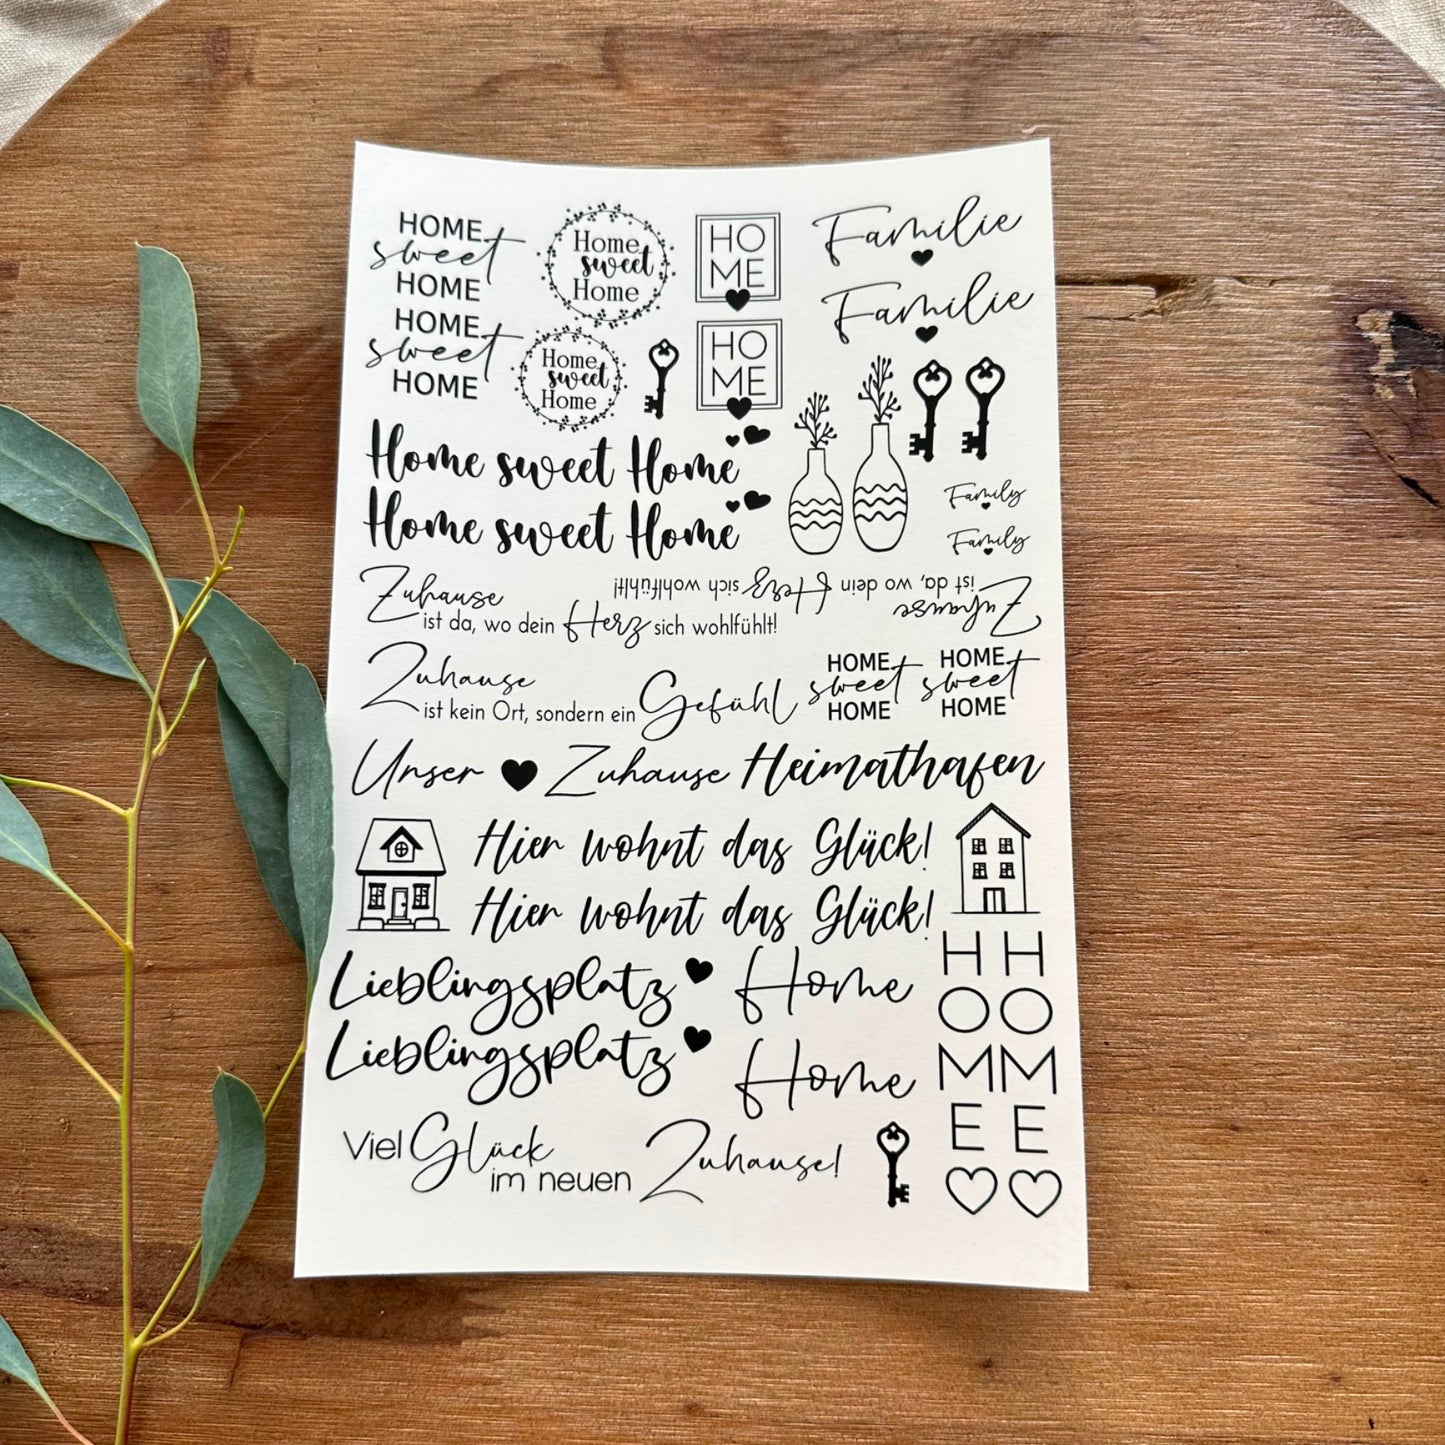 HOME
sweet
HOME
Home
sweet
Home
HO
ME
Familie
Familie
HOME
sweet
HOME
Home
sweet
Home
HO
ME
Home sweet Home
Home sweet Home
Family
Family
Zuhause
ist da, wo dein Herz sich wohlfühlt!
Zuhause
ist da, wo dein Herz sich wohlfühlt!
Zuhause
ist kein Ort, sondern ein Gefühl
HOME
sweet
HOME
HOME
sweet
HOME
Unser Zuhause
Heimathafen
Hier wohnt das Glück!
Hier wohnt das Glück!
Lieblingsplatz
Home
Lieblingsplatz
Home
H
O
M
E
H
O
M
E
Viel Glück
im neuen Zuhause!